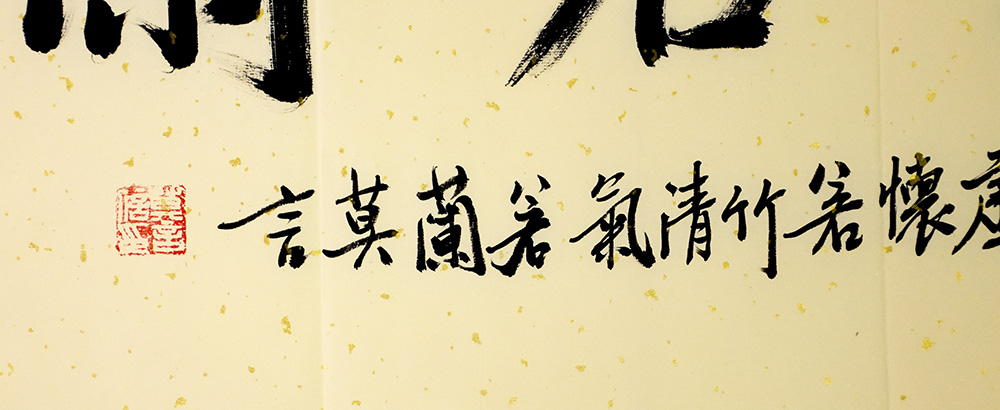 虛懷若竹清氣若蘭莫言